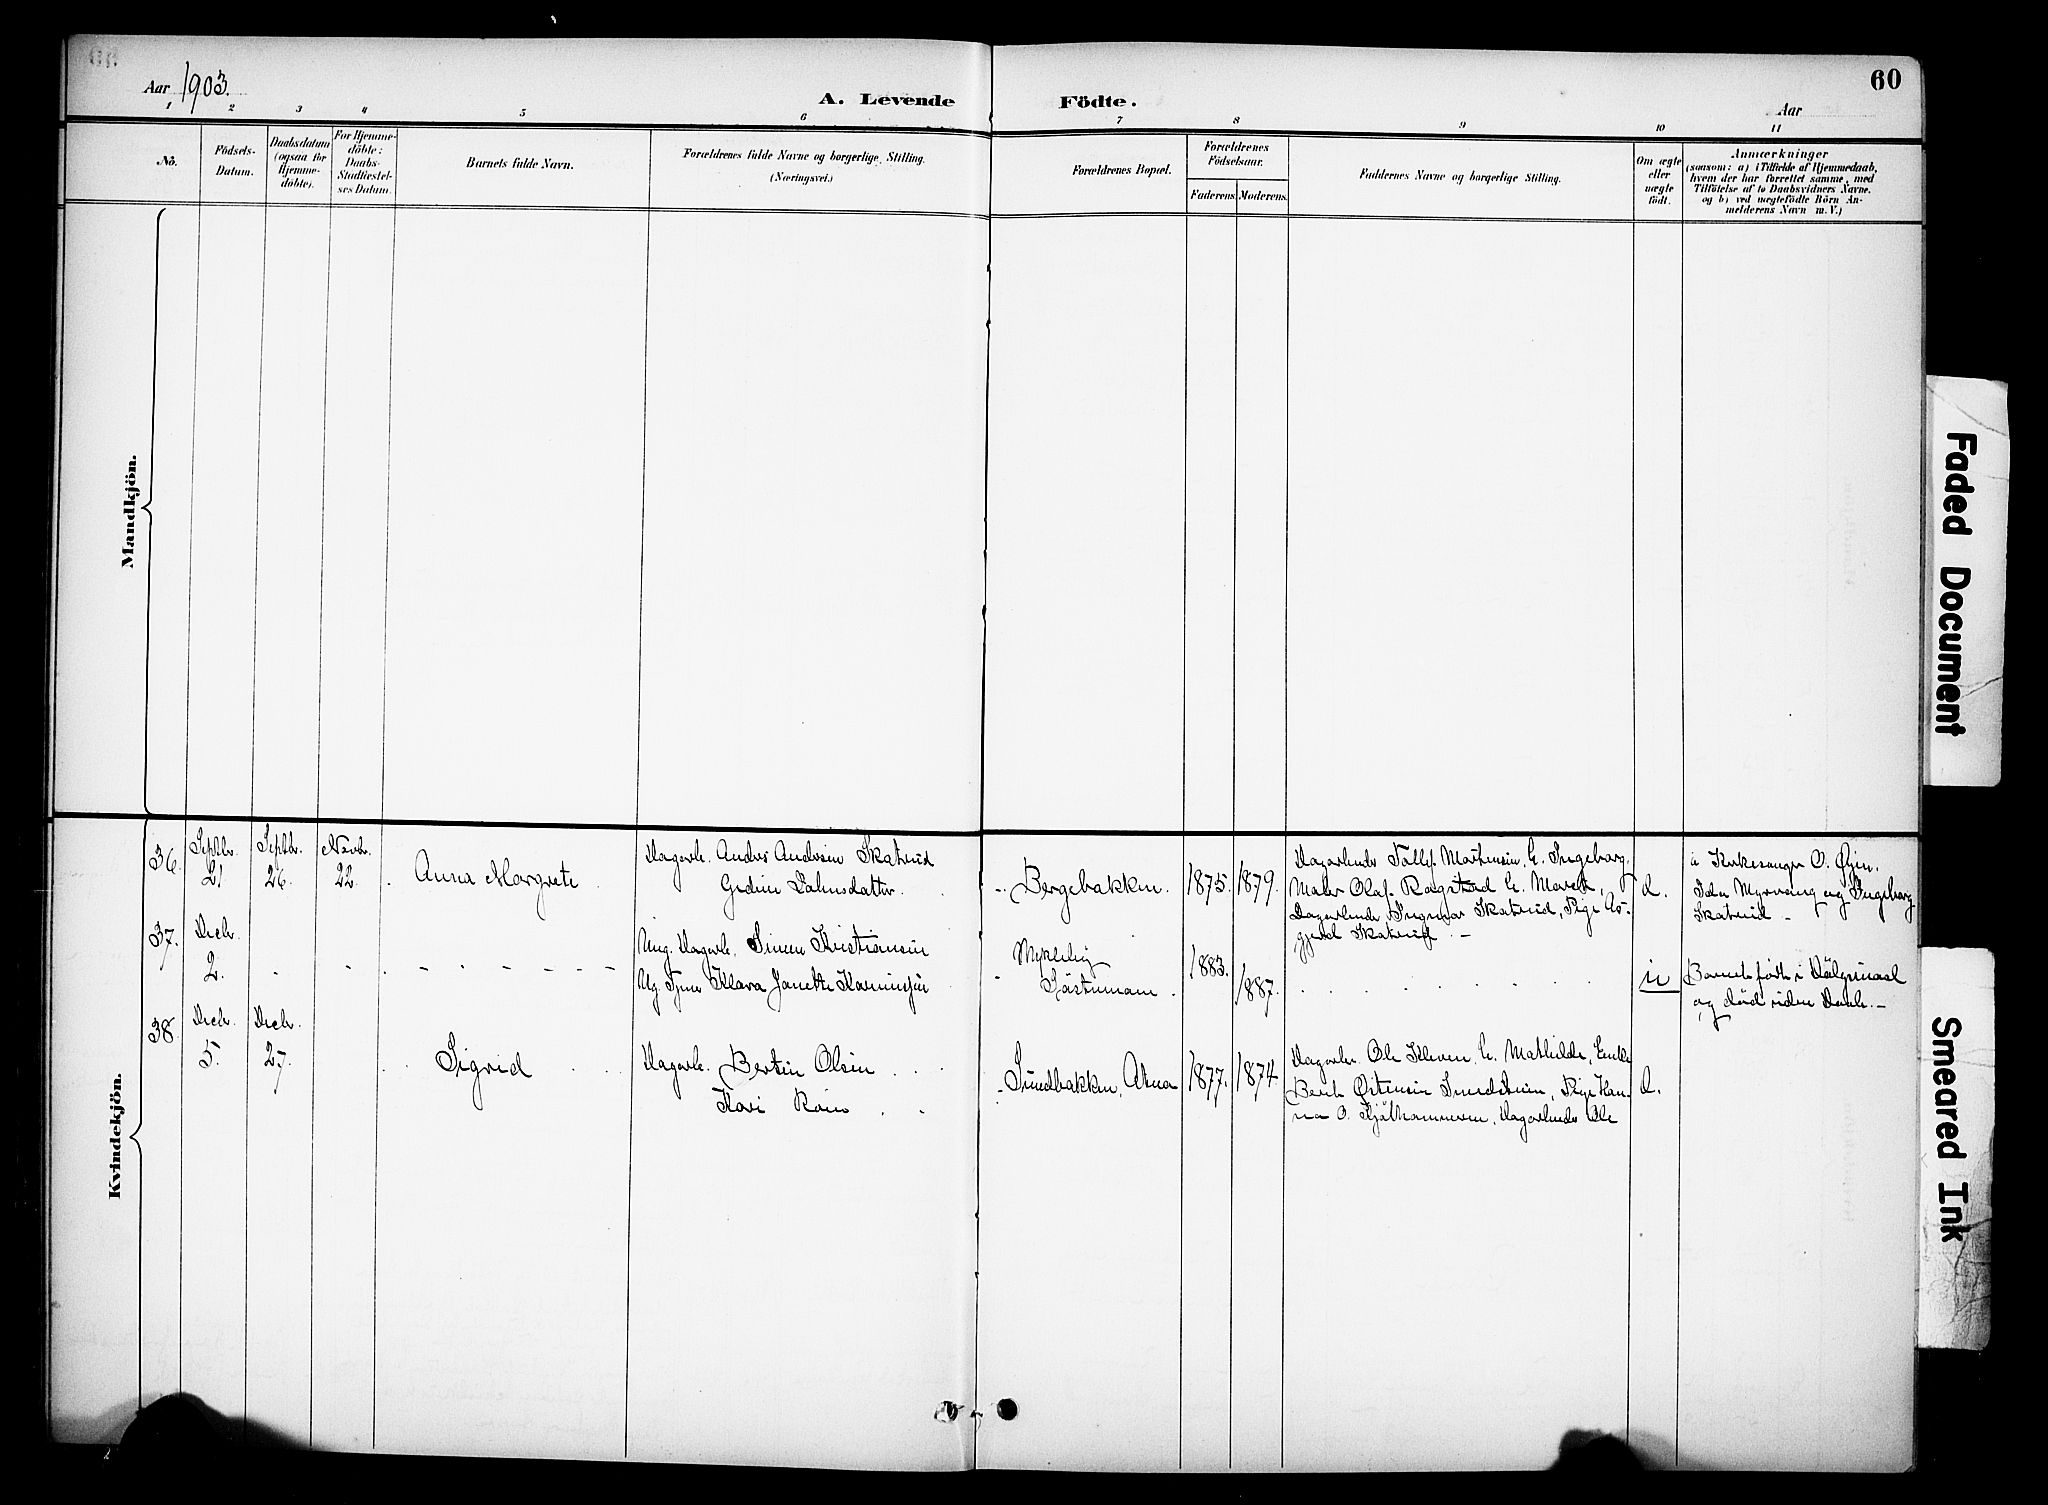 60
Aar 1903.
A. Levende Födte.
Aar
1 2 3 4 5 6 7 8 9 10 11
No.
Födsels-
Datum.
Daabsdatum
(ogsaa for
Hjemme-
döbte).
For Hjemme-
döbte:
Daabs-
Stadfæstel-
ses Datum.
Barnets fulde Navn.
Forældrenes fulde Navne og borgerlige Stilling.
(Næringsvei.)
Forældrenes Bopæl.
Forældrenes
Födselsaar.
Faderens Moderens
Faddernes Navne og borgerlige Stilling.
Om ægte
eller
uægte
födt.
Anmærkninger
(saasom: a) i Tilfælde af Hjemmedaab,
hvem der har forrettet samme, med
Tilföielse af to Daabsvidners Navne.
og b) ved uægtefödte Börn An-
melderens Navn m. V.)
Mandkjön.
Kvindekjön.
36.
Septbr.
21
Septbr.
26.
Novbr.
22.
Anna Margrete
Dagarb. Anders Andersen Skaterud
Gedine Dahnsdatter
Bergebakken.
1875.
1879.
Dagarbeider Tollef Martinsen, E. Ingeborg,
Maler Olaf Rogstad E. Maren,
Dagarbeider Ingvar Skaterud, Pige As-
gjerd Skaterud. –
Æ.
a Kirkesanger O. Øjen.
Ida Myrvang og Ingeborg
Skaterud –
37.
Decbr.
2.
Ung. Dagarb. Simen Kristiansen
Ug. Tjener Klara Janette
Myklebÿ
1883.
1887.
u
Barnet født i
og død uden Daab. –
38.
Decbr.
5.
Decbr.
27.
Sigrid
Dagarb. Bertin Olsen
Kari
Sundbakken, Atna
1877.
1874.
Dagarbr. Ole Kleven E. Mathilde, Enke
Berit Østensen Sundheim, Pige Han-
na O. Kjølhammeren, Dagarbeider Ole
Æ.
Faded Document
Smeared Ink